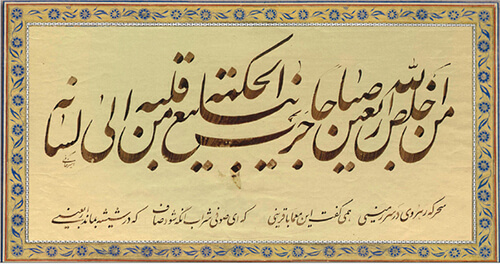 من اخلص لله اربعین صباحا جرت ینابیع الحکمة من قلبه الی لسانه
سحرگه رهروی در سرزمینی همی گفت این معما با قرینی که ای صوفی شراب آنگه شود صاف که در شیشه بماند اربعینی